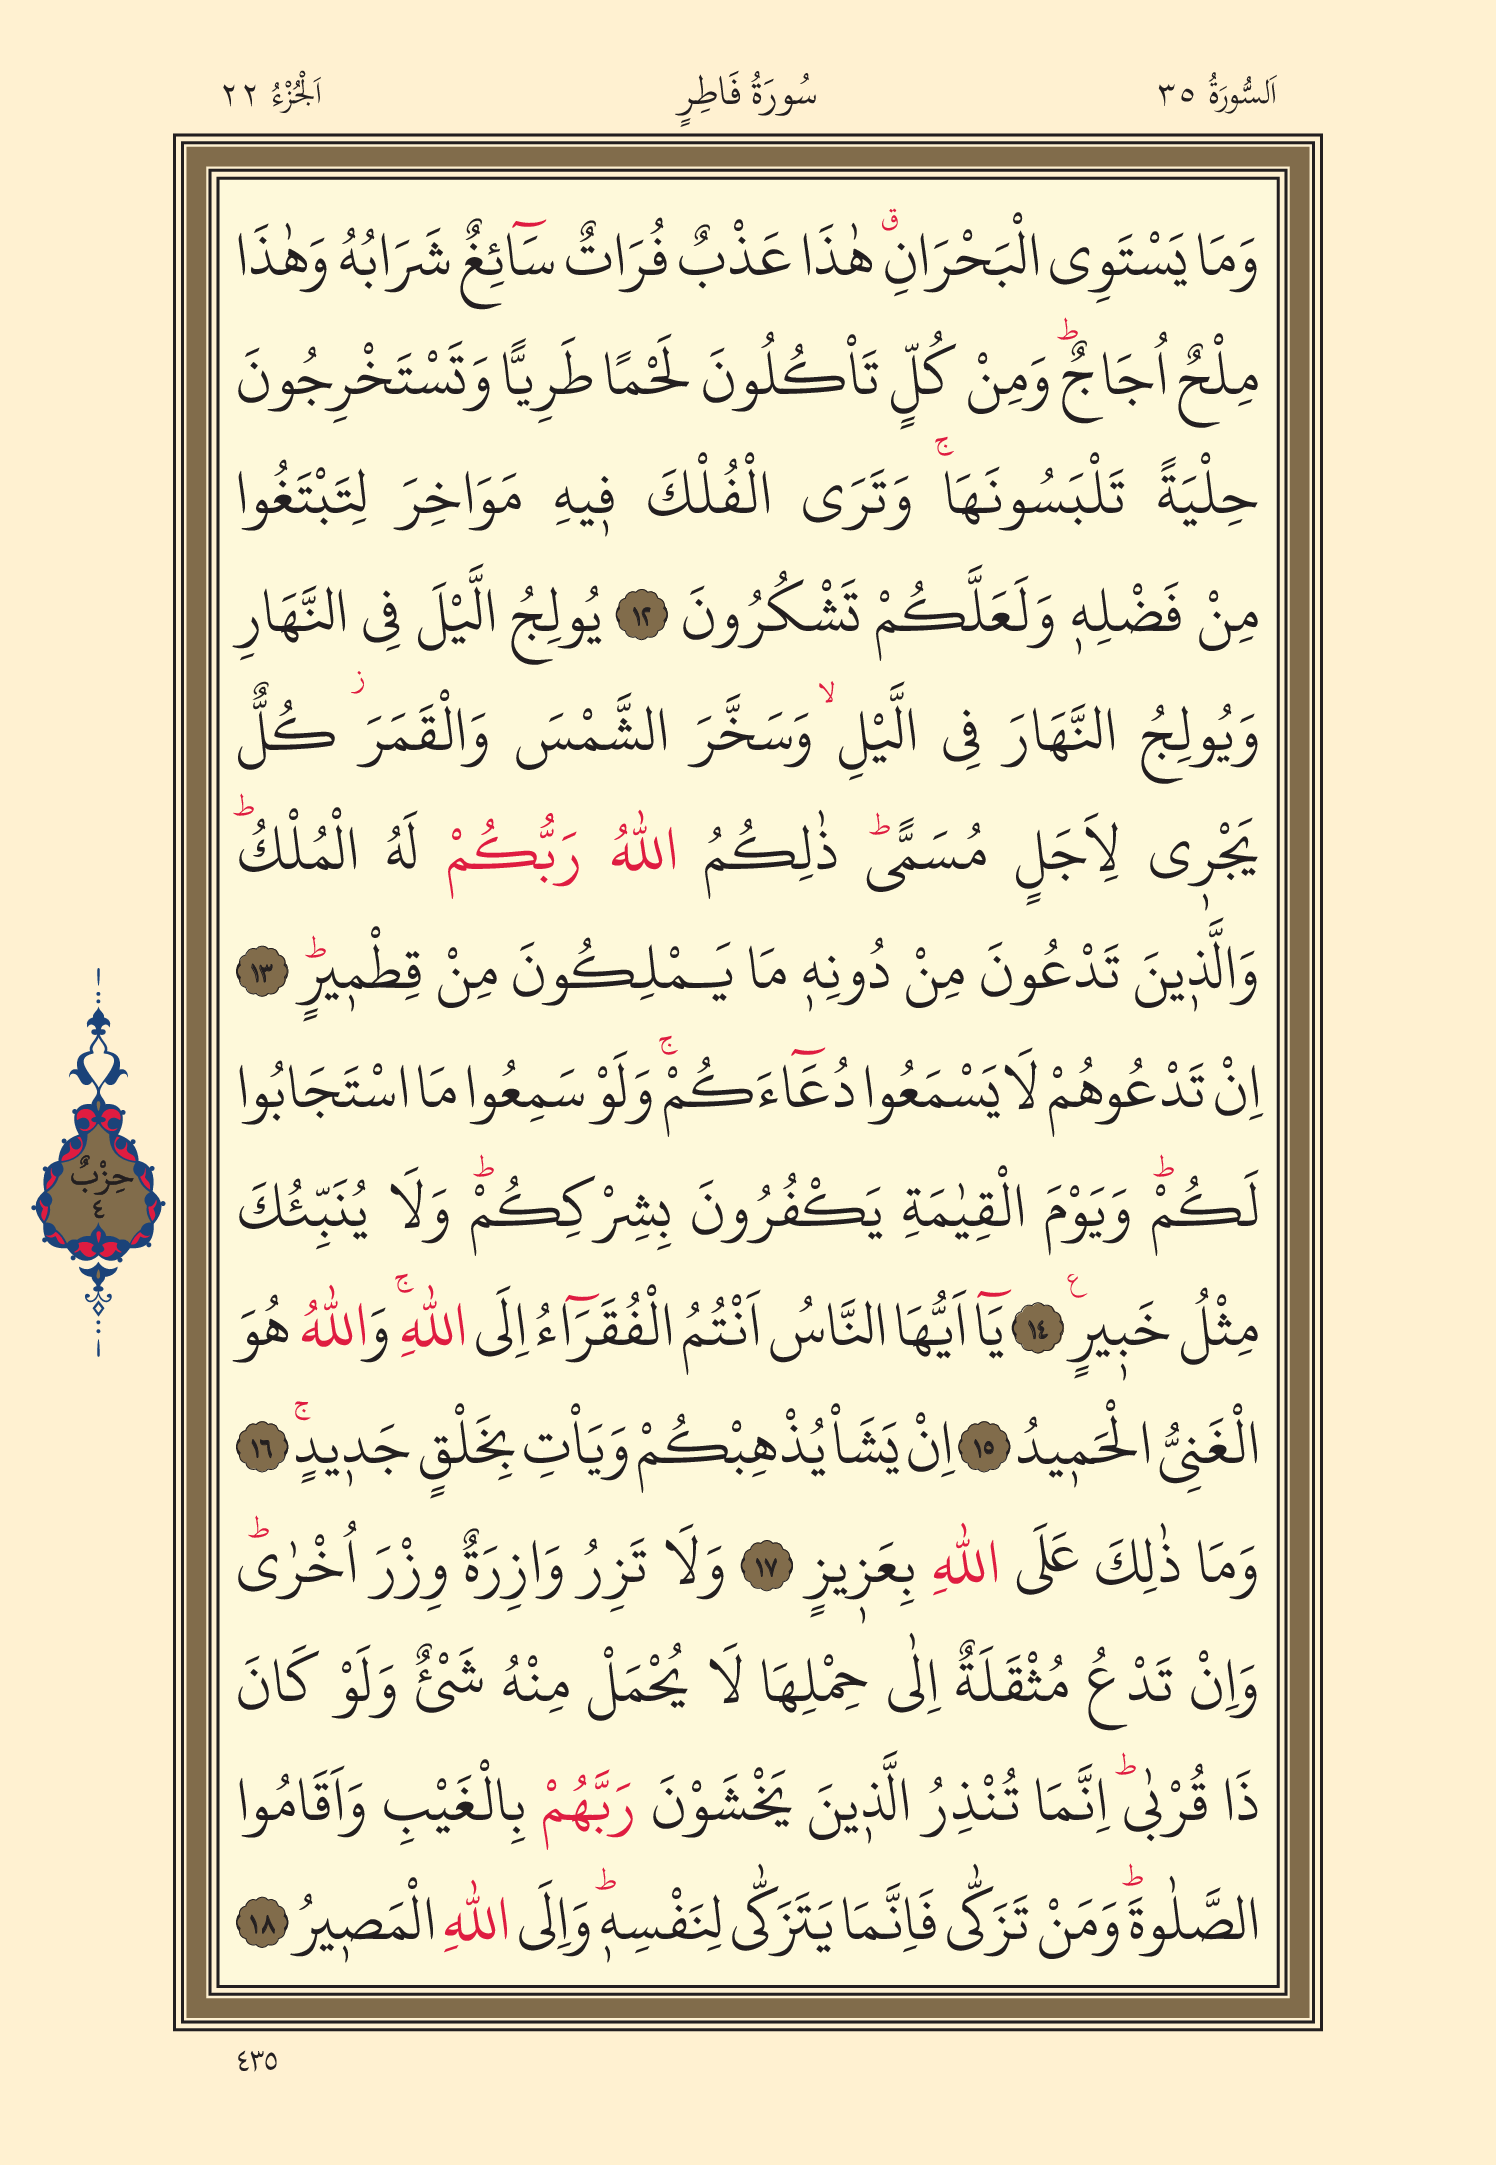 اَلسُّورَةُ ٣٥ سُورَةُ فَاطِرٍ اَلْجُزْءُ ٢٢
وَمَا يَسْتَوِى الْبَحْرَانِۗ هٰذَا عَذْبٌ فُرَاتٌ سَآئِغٌ شَرَابُهُ وَهٰذَا
مِلْحٌ اُجَاجٌۜ وَمِنْ كُلٍّ تَاْكُلُونَ لَحْمًا طَرِيًّا وَتَسْتَخْرِجُونَ
حِلْيَةً تَلْبَسُونَهَاۚ وَتَرَى الْفُلْكَ ف۪يهِ مَوَاخِرَ لِتَبْتَغُوا
مِنْ فَضْلِه۪ وَلَعَلَّكُمْ تَشْكُرُونَ ﴿١٢﴾ يُولِجُ الَّيْلَ فِى النَّهَارِ
وَيُولِجُ النَّهَارَ فِى الَّيْلِۙ وَسَخَّرَ الشَّمْسَ وَالْقَمَرَۘ كُلٌّ
يَجْر۪ى لِاَجَلٍ مُسَمًّىۜ ذٰلِكُمُ اللّٰهُ رَبُّكُمْ لَهُ الْمُلْكُۜ
وَالَّذ۪ينَ تَدْعُونَ مِنْ دُونِه۪ مَا يَمْلِكُونَ مِنْ قِطْم۪يرٍۜ ﴿١٣﴾
اِنْ تَدْعُوهُمْ لَا يَسْمَعُوا دُعَآءَكُمْۚ وَلَوْ سَمِعُوا مَا اسْتَجَابُوا
لَكُمْۜ وَيَوْمَ الْقِيٰمَةِ يَكْفُرُونَ بِشِرْكِكُمْۜ وَلَا يُنَبِّئُكَ
مِثْلُ خَب۪يرٍ ع ﴿١٤﴾ يَآ اَيُّهَا النَّاسُ اَنْتُمُ الْفُقَرَآءُ اِلَى اللّٰهِۚ وَاللّٰهُ هُوَ
الْغَنِىُّ الْحَم۪يدُ ﴿١٥﴾ اِنْ يَشَاْ يُذْهِبْكُمْ وَيَاْتِ بِخَلْقٍ جَد۪يدٍۚ ﴿١٦﴾
وَمَا ذٰلِكَ عَلَى اللّٰهِ بِعَز۪يزٍ ﴿١٧﴾ وَلَا تَزِرُ وَازِرَةٌ وِزْرَ اُخْرٰىۜ
وَاِنْ تَدْعُ مُثْقَلَةٌ اِلٰى حِمْلِهَا لَا يُحْمَلْ مِنْهُ شَىْءٌ وَلَوْ كَانَ
ذَا قُرْبٰىۜ اِنَّمَا تُنْذِرُ الَّذ۪ينَ يَخْشَوْنَ رَبَّهُمْ بِالْغَيْبِ وَاَقَامُوا
الصَّلٰوةَۜ وَمَنْ تَزَكّٰى فَاِنَّمَا يَتَزَكّٰى لِنَفْسِه۪ۜ وَاِلَى اللّٰهِ الْمَص۪يرُ ﴿١٨﴾
حِزْبٌ
٤
٤٣٥